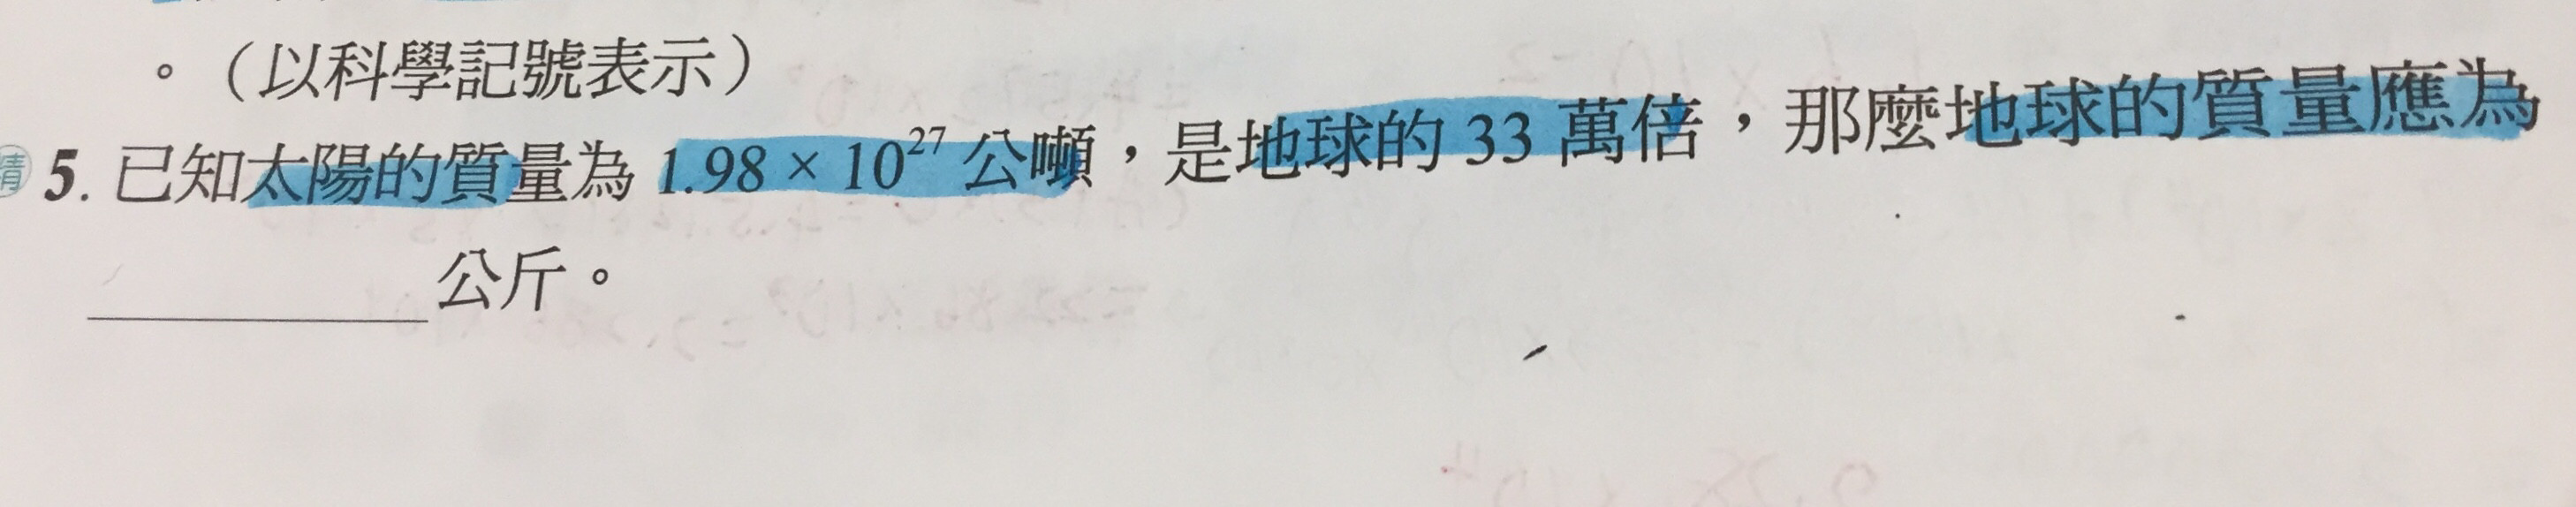 。（以科學記號表示）
5. 已知太陽的質量為 1.98 × 10²⁷ 公噸，是地球的 33 萬倍，那麼地球的質量應為
公斤。